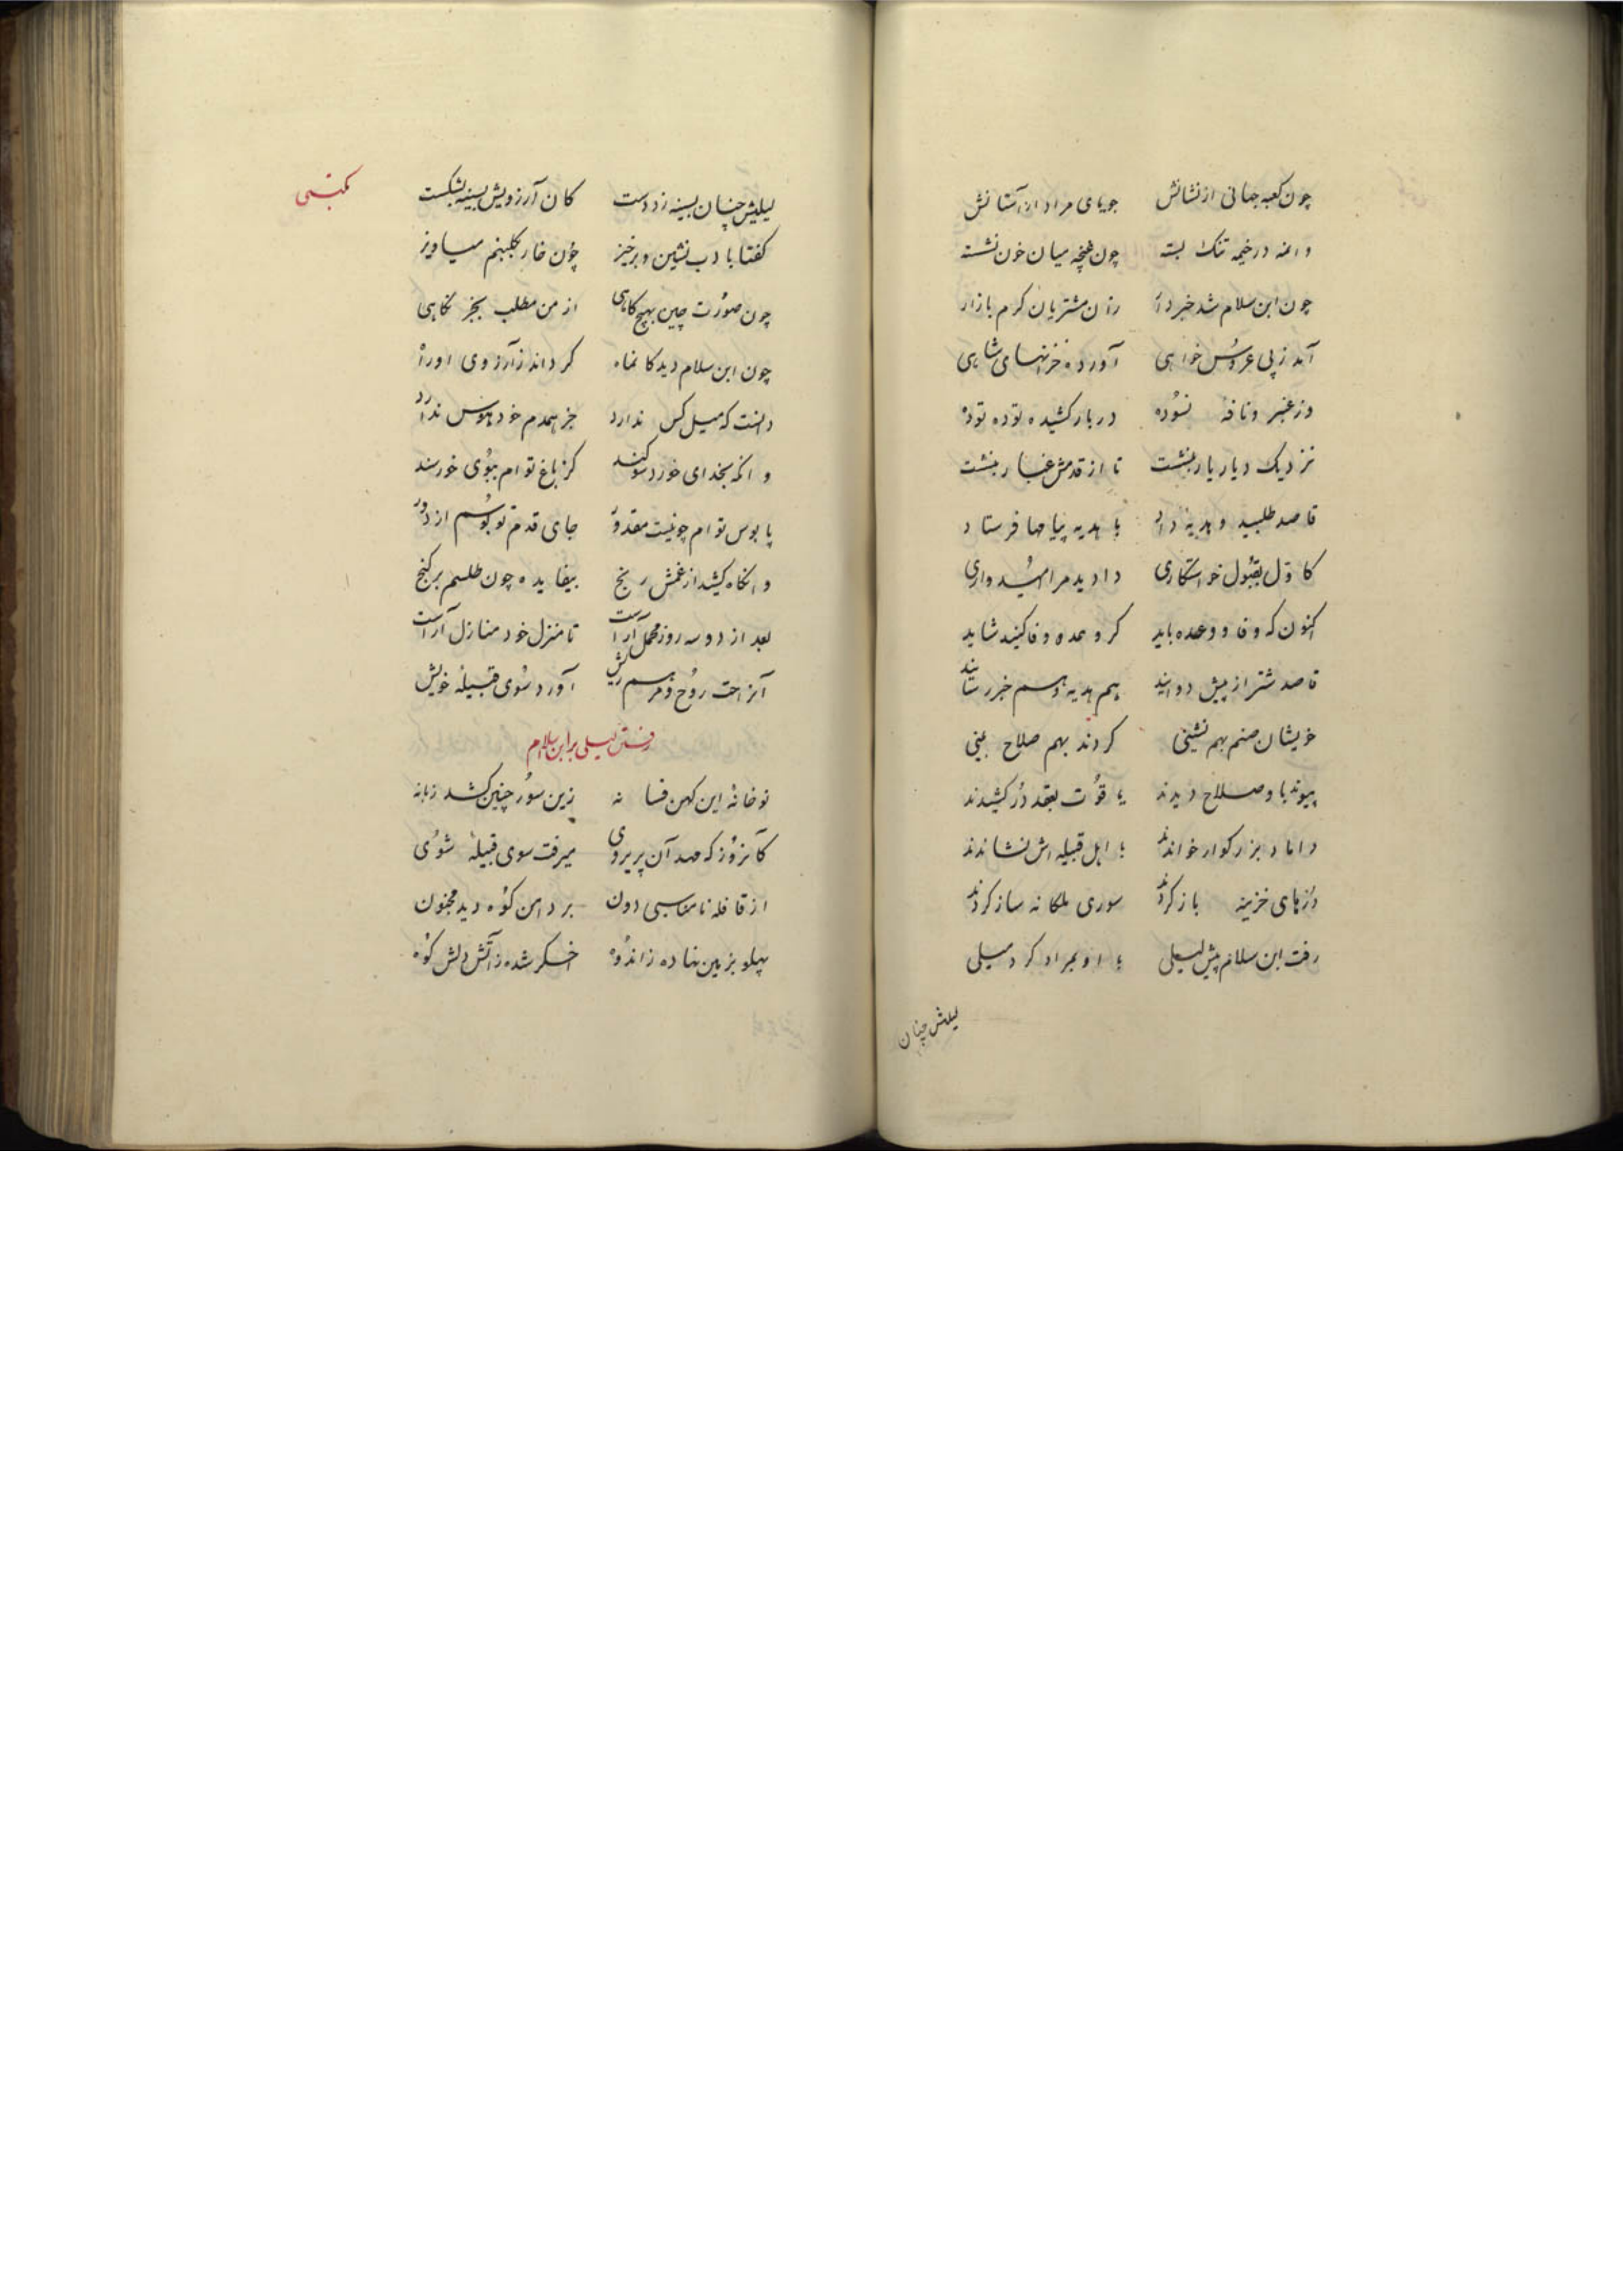 چون کعبه جهانی از نشانش جویای مراد از آستانش
وانمه در خیمه تنک بسته چون غنچه میان خون نشسته
چون ابن سلام شد خبردار زان مشتریان کرم بازار
آمد ز پی عروس خواهی آورده خزانهای شاهی
وز عنبر و نافه نسوده در بار کشیده توده توده
نزدیک دیار یار بنشست تا از قدمش غبار بنشست
قاصد طلبید و هدیه داد با هدیه پیامها فرستاد
کاول بقبول خواستکاری دادید مرا امیدواری
اکنون که وفا و وعده باید کر وعده وفا کنید شاید
قاصد شتر از پیش دوانید هم هدیه و هم خبر رسانید
خویشان صنم بهم نشینی کردند بهم صلاح بینی
پیوند با و صلاح دیدند یاقوت بعقد در کشیدند
داماد بزرکوار خواندند با اهل قبیله اش نشاندند
درهای خزینه باز کردند سوری ملکانه ساز کردند
رفت ابن سلام پیش لیلی با او بمراد کرد میلی
لیلیش چنان
لیلیش چنان بسینه زد دست کان آرزویش بسینه بشکست
کفتا بادب نشین و برخیز چون خار بکلبنم میاویز
چون صورت چین بهیچ کاهی از من مطلب بجز نکاهی
چون ابن سلام دید کانماه کرداند ز آرزوی او راه
دانست که میل کس ندارد جز همدم خود هوس ندارد
وانکه بخدای خورد سوکند کز باغ توام ببوی خورسند
پابوس توام چو نیست مقدور جای قدم تو بوسم از دور
وانکاه کشید از غمش رنج بیفایده چون طلسم بر کنج
بعد از دو سه روز محمل آراست تا منزل خود منازل آراست
آنراحت روح و مرهم ریش آورد سوی قبیله خویش
رفتن لیلی بر ابن سلام
نوخانه این کهن فسانه زین سور چنین کشد زبانه
کانروز که مهد آن پریروی میرفت سوی قبیله شوی
از قافله نامناسبی دون بر دامن کوه دید مجنون
پهلو بزمین نهاده ز اندوه اخکر شده ز آتش دلش کوه
مکتبی